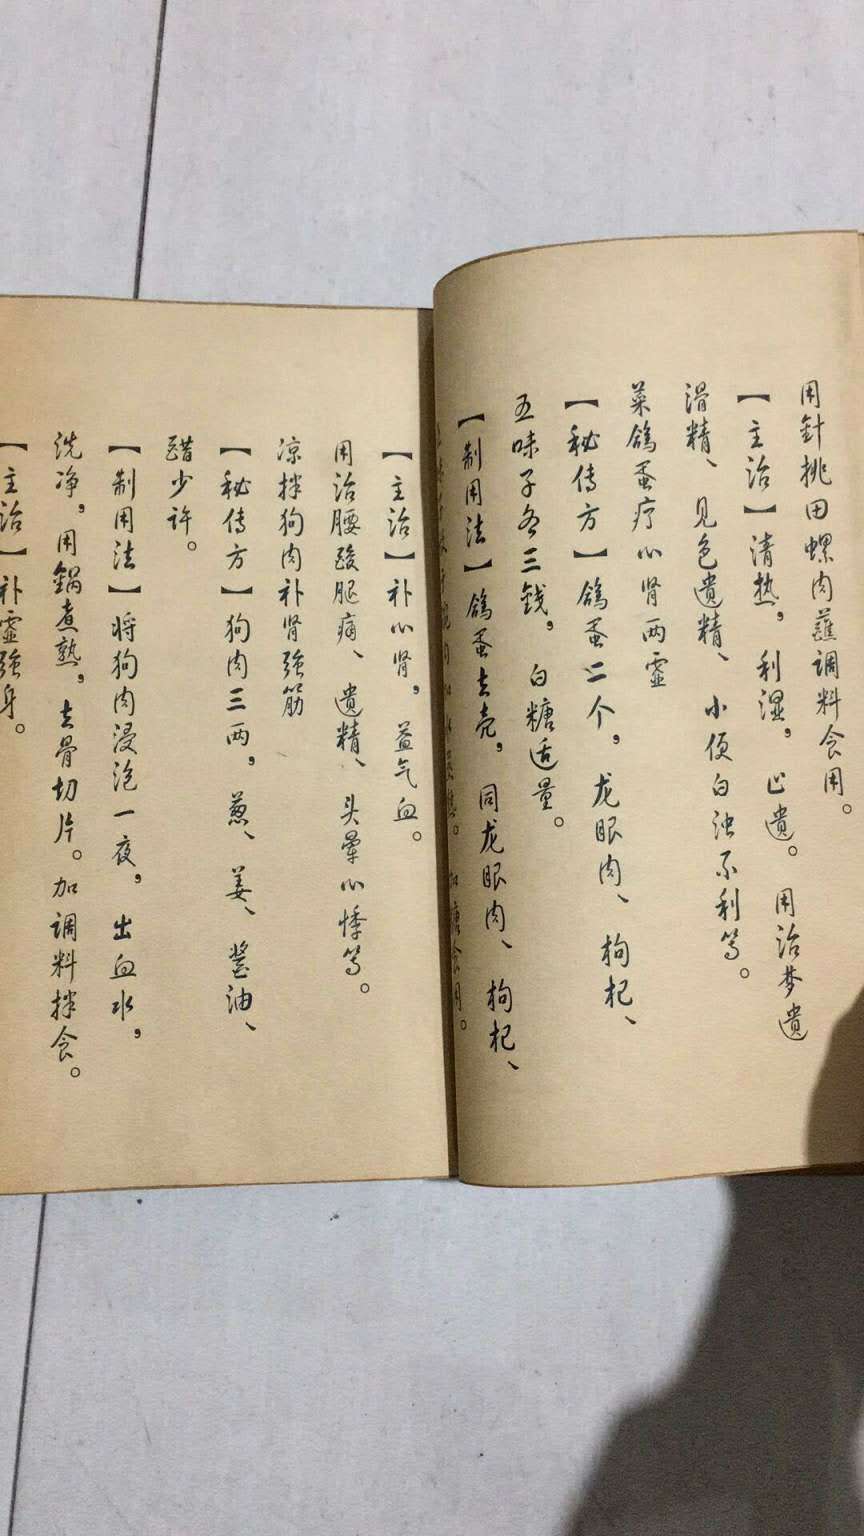 用針挑田螺肉蘸調料食用。
【主治】清热，利湿，止遗。用治梦遗
滑精、见色遗精、小便白浊不利等。
菜鴿蛋疗心肾两虚
【秘传方】鴿蛋二个，龙眼肉、枸杞、
五味子各三錢，白糖适量。
【制用法】鴿蛋去壳，同龙眼肉、枸杞、
加糖食用。
【主治】补心肾，益气血。
用治腰酸腿痛、遗精、头晕心悸等。
凉拌狗肉补肾強筋
【秘传方】狗肉三两，葱、姜、醬油、
醋少许。
【制用法】将狗肉浸泡一夜，出血水，
洗净，用鍋煮熟，去骨切片。加调料拌食。
【主治】补虚強身。